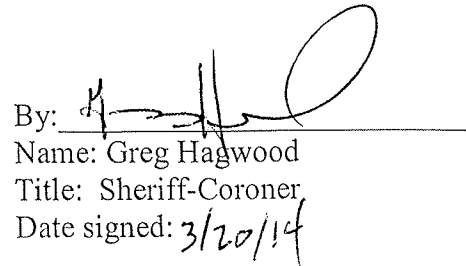 By:
Name: Greg Hagwood
Title: Sheriff-Coroner
Date signed: 3/20/14